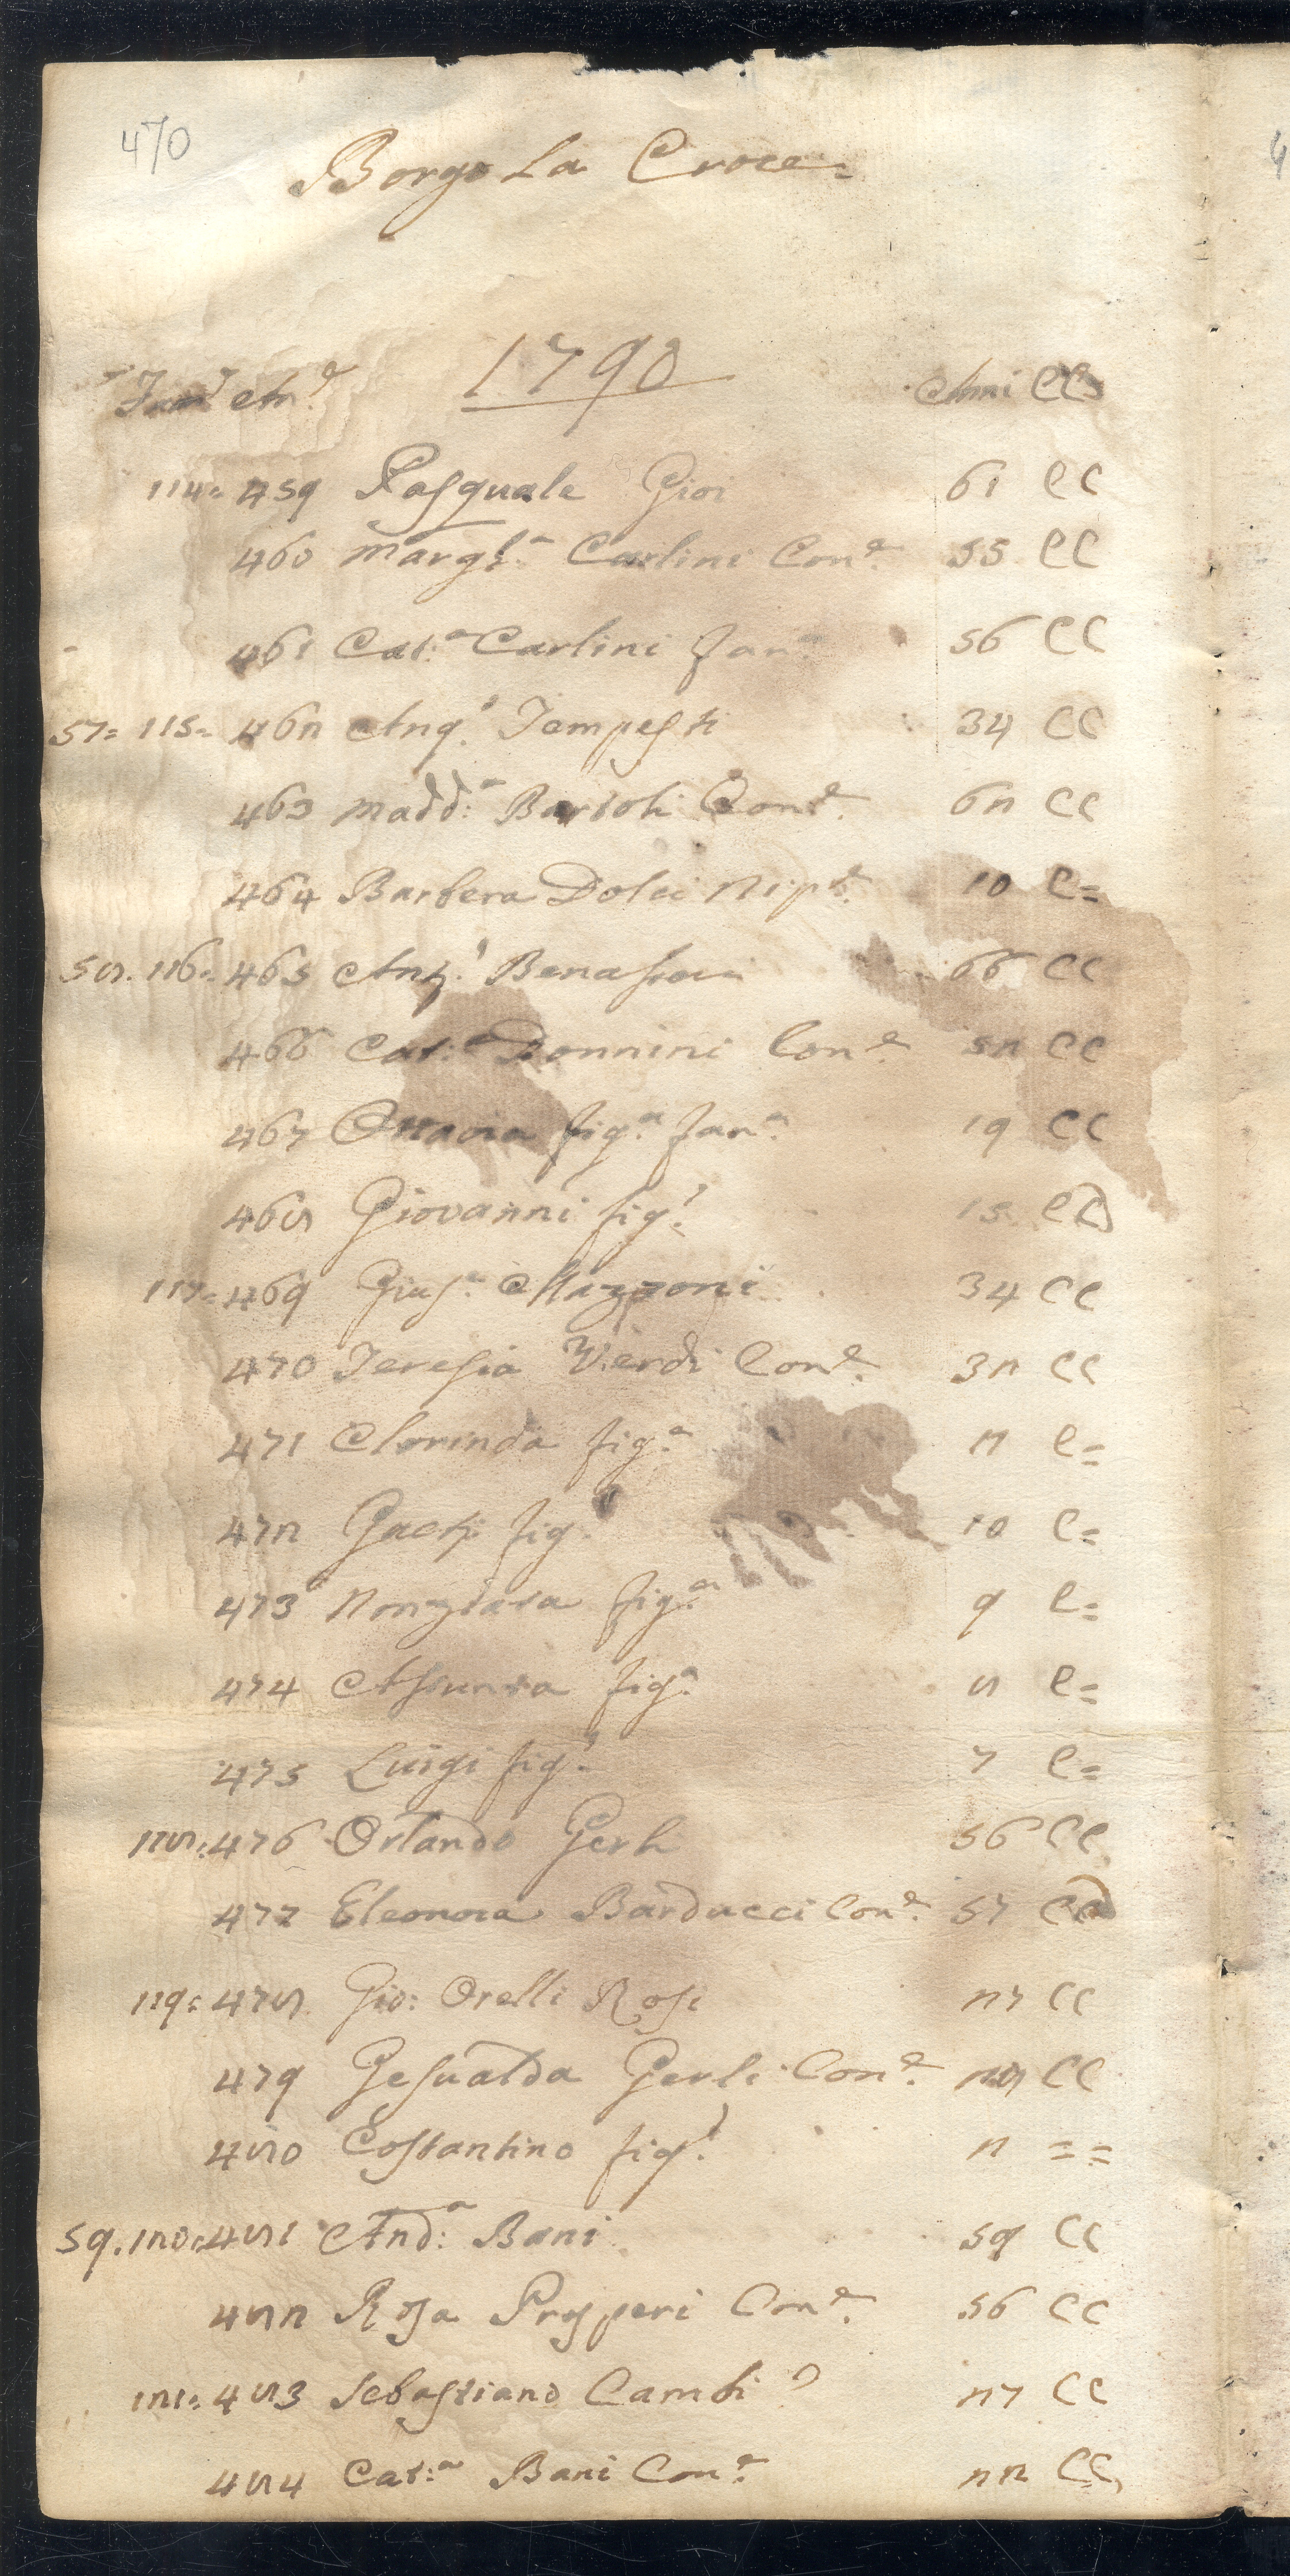 470
Borgo La Croce=
1790
Fam.e An.e Anni CC
114= 459 Pasquale Gioi 61 CC
460 Margh.a Carlini Con.e 55 CC
461 Cat:a Carlini Fan.a 56 CC
57= 115= 462 Ang.o Tempesti 34 CC
463 Madd:a Bartoli Con.e 62 CC
464 Barbera Dolci Nip.e 10 C=
58. 116= 465 Ant.o 66 CC
466 Cat:a Donnini Con.e 52 CC
467 Ottavia fig.a Fan.a 19 CC
468 Giovanni fig.o 15 CC
117= 469 Gius.e Mazzoni 34 CC
470 Teresia Verdi Con.e 32 CC
471 Clorinda fig.a 11 C=
472 fig.o 10 C=
473 Nonziata fig.a 9 C=
474 Assunta fig.a 8 C=
475 Luigi fig.o 7 C=
118= 476 Orlando Gerli 56 CC
477 Eleonora Barducci Con.e 57 CC
119= 478 Gio: Orelli Rosi 27 CC
479 Gesualda Gerli Con.e 28 CC
480 Costantino fig.o 2 = =
59. 120= 481 And:a Bani 59 CC
482 Rosa Prosperi Con.e 56 CC
121= 483 Sebastiano Cambi 27 CC
484 Cat:a Bani Con.e 22 CC